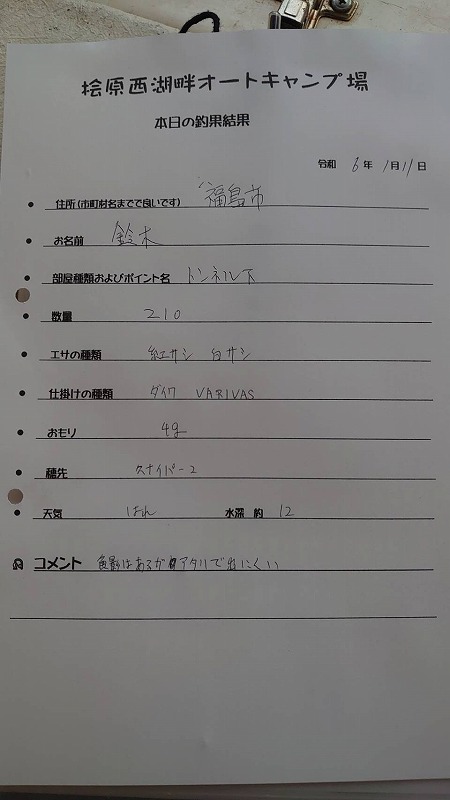 桧原西湖畔オートキャンプ場
本日の釣果結果
令和 6年 1月11日
住所(市町村名まで良いです) 福島市
お名前 鈴木
部屋種類およびポイント名 トンネル下
数量 210
エサの種類 紅サシ 白サシ
仕掛けの種類 ダイワ VARIVAS
おもり 4g
穂先 スナイパー2
天気 はれ 水深 約 12
コメント 魚影はあるがアタリで出にくい